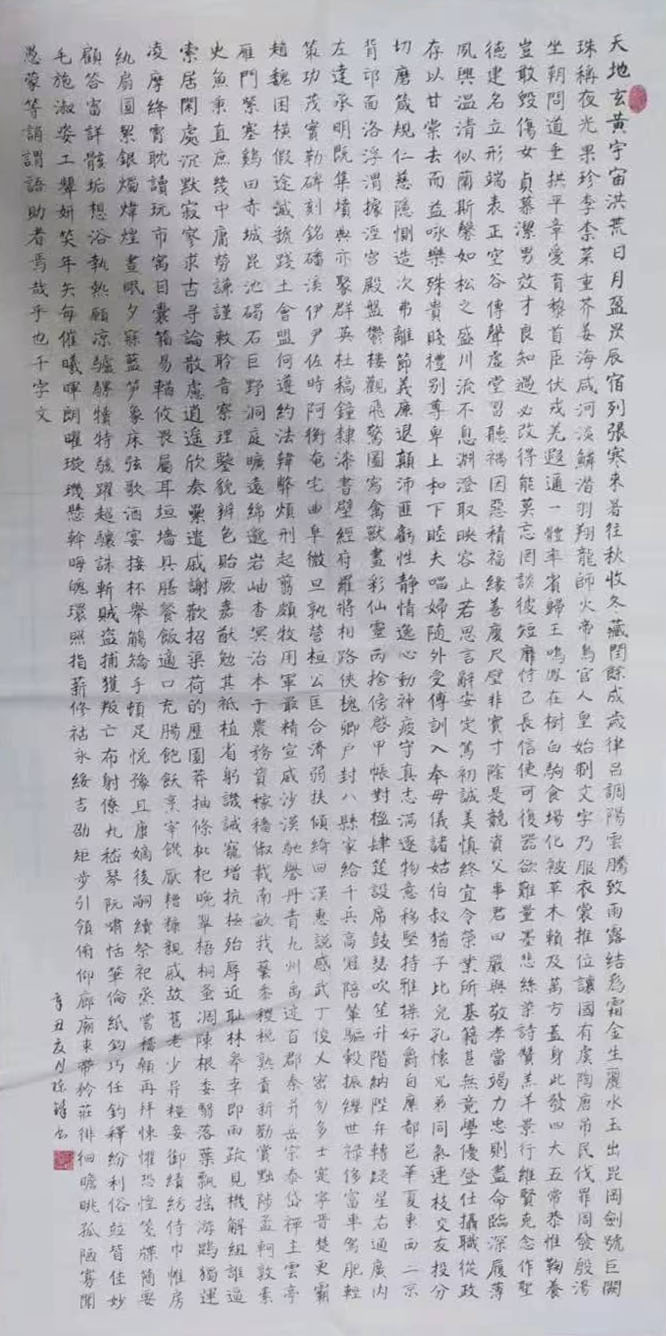 天地玄黃宇宙洪荒日月盈昃辰宿列張寒來暑往秋收冬藏閏餘成歲律呂調陽雲騰致雨露結為霜金生麗水玉出昆岡劍號巨闕
珠稱夜光果珍李柰菜重芥姜海咸河淡鱗潛羽翔龍師火帝鳥官人皇始制文字乃服衣裳推位讓國有虞陶唐吊民伐罪周發殷湯
坐朝問道垂拱平章愛育黎首臣伏戎羌遐邇一體率賓歸王鳴鳳在樹白駒食場化被草木賴及萬方蓋身此發四大五常恭惟鞠養
豈敢毀傷女貞慕潔男效才良知過必改得能莫忘罔談彼短靡恃己長信使可復器欲難量墨悲絲染詩贊羔羊景行維賢克念作聖
德建名立形端表正空谷傳聲虛堂習聽禍因惡積福緣善慶尺璧非寶寸陰是競資父事君曰嚴與敬孝當竭力忠則盡命臨深履薄
夙興溫清似蘭斯馨如松之盛川流不息淵澄取映容止若思言辭安定篤初誠美慎終宜令榮業所基籍甚無竟學優登仕攝職從政
存以甘棠去而益咏樂殊貴賤禮別尊卑上和下睦夫唱婦隨外受傳訓入奉母儀諸姑伯叔猶子比兒孔懷兄弟同氣連枝交友投分
切磨箴規仁慈隱惻造次弗離節義廉退顛沛匪虧性靜情逸心動神疲守真志滿逐物意移堅持雅操好爵自縻都邑華夏東西二京
背邙面洛浮渭據涇宮殿盤鬱樓觀飛驚圖寫禽獸畫彩仙靈丙捨傍啓甲帳對楹肆筵設席鼓瑟吹笙升階納陛弁轉疑星右通廣內
左達承明既集墳典亦聚群英杜稿鐘隸漆書壁經府羅將相路俠槐卿戶封八縣家給千兵高冠陪輦驅轂振纓世祿侈富車駕肥輕
策功茂實勒碑刻銘磻溪伊尹佐時阿衡奄宅曲阜微旦孰營桓公匡合濟弱扶傾綺回漢惠説感武丁俊乂密勿多士寔寧晉楚更霸
趙魏困橫假途滅虢踐土會盟何遵約法韓弊煩刑起翦頗牧用軍最精宣威沙漠馳譽丹青九州禹迹百郡秦并岳宗泰岱禪主雲亭
雁門紫塞鷄田赤城昆池碣石巨野洞庭曠遠綿邈岩岫杳冥治本于農務資稼穡俶載南畝我藝黍稷稅熟貢新勸賞黜陟孟軻敦素
史魚秉直庶幾中庸勞謙謹敕聆音察理鑒貌辨色貽厥嘉猷勉其祗植省躬譏誡寵增抗極殆辱近耻林皋幸即兩疏見機解組誰逼
索居閑處沉默寂寥求古尋論散慮逍遙欣奏累遣戚謝歡招渠荷的歷園莽抽條枇杷晚翠梧桐蚤凋陳根委翳落葉飄搖游鵾獨運
凌摩絳霄耽讀玩市寓目囊箱易輶攸畏屬耳垣墻具膳餐飯適口充腸飽飫烹宰饑厭糟糠親戚故舊老少异糧妾御績紡侍巾帷房
紈扇圓絜銀燭煒煌晝眠夕寐藍笋象床弦歌酒宴接杯舉觴矯手頓足悅豫且康嫡後嗣續祭祀烝嘗稽顙再拜悚懼恐惶箋牒簡要
顧答審詳骸垢想浴執熱願涼驢騾犢特駭躍超驤誅斬賊盜捕獲叛亡布射僚丸嵇琴阮嘯恬筆倫紙鈞巧任釣釋紛利俗竝皆佳妙
毛施淑姿工顰妍笑年矢每催曦暉朗曜璇璣懸斡晦魄環照指薪修祜永綏吉劭矩步引領俯仰廊廟束帶矜莊徘徊瞻眺孤陋寡聞
愚蒙等誚謂語助者焉哉乎也千字文
辛丑